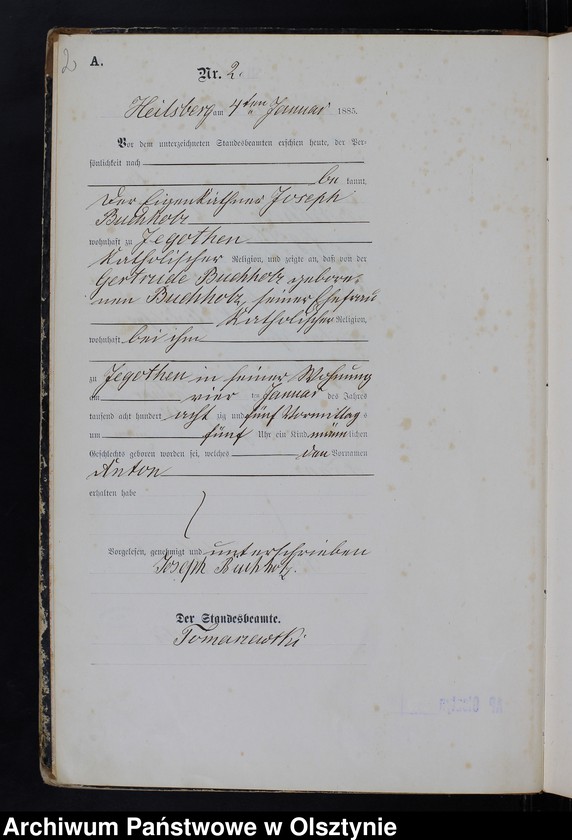 2
A.
Nr. 2.
Heilsberg am 4ten Januar 1885.
Vor dem unterzeichneten Standesbeamten erschien heute, der Per-
sönlichkeit nach
be kannt,
Der Eigenkäthner Joseph
Buchholz
wohnhaft zu Jegothen
Katholischer Religion, und zeigte an, daß von der
Gertrude Buchholz gebore-
nen Buchholz, seiner Ehefrau
Katholischer Religion,
wohnhaft bei ihm
zu Jegothen in seiner Wohnung
am vier ten Januar des Jahres
tausend acht hundert acht zig und fünf Vormittag s
um fünf Uhr ein Kind männ lichen
Geschlechts geboren worden sei, welches den Vornamen
Anton
erhalten habe
Vorgelesen, genehmigt und unterschrieben
Joseph Buchholz.
Der Standesbeamte.
Tomaszewski
AP Olsztyn
Archiwum Państwowe w Olsztynie